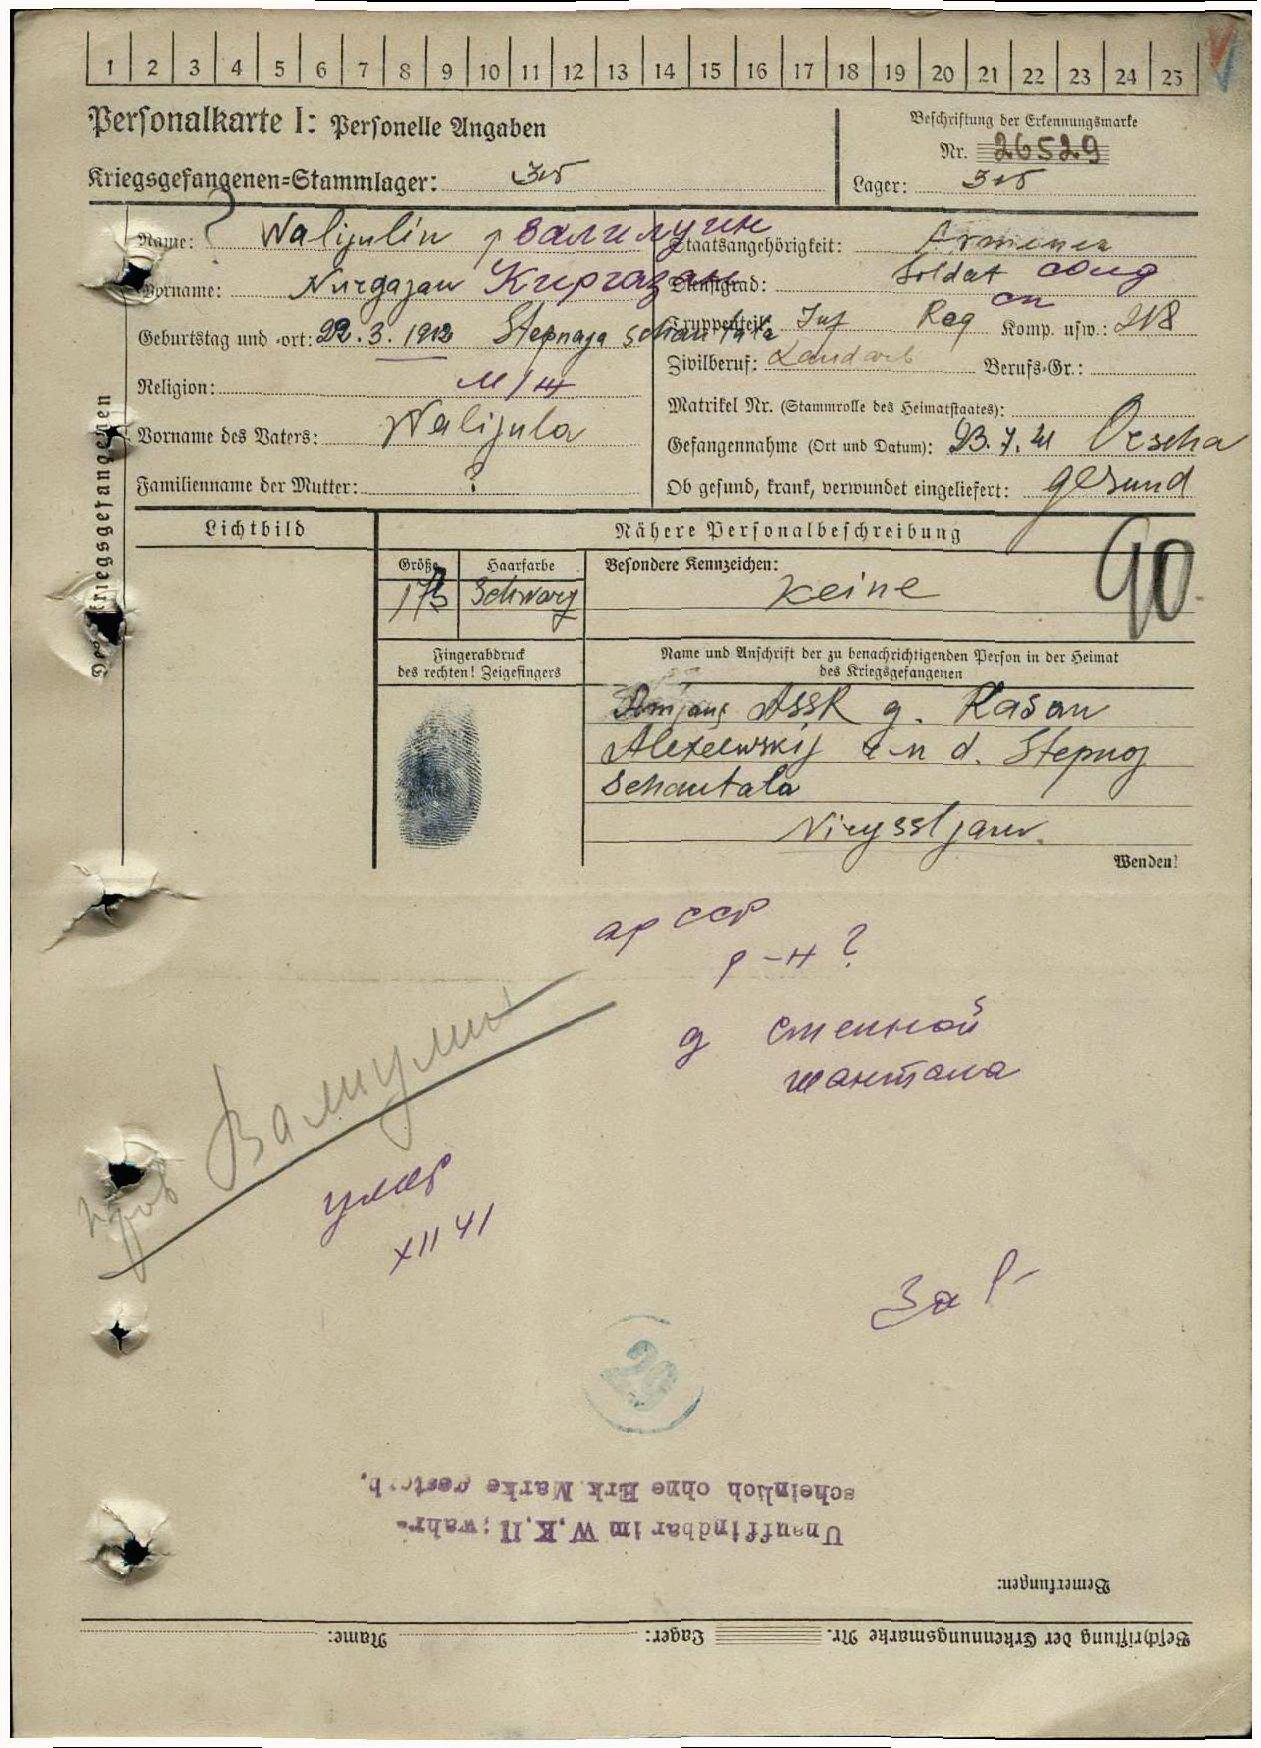 1 2 3 4 5 6 7 8 9 10 11 12 13 14 15 16 17 18 19 20 21 22 23 24 25
Personalkarte I: Personelle Angaben
Kriegsgefangenen=Stammlager:
Beschriftung der Erkennungsmarke
Nr. 26529
Lager:
Name: Walijulin
Vorname: Nurgajan
Geburtstag und =ort: 22. 3. 1912 Stepnaja Schantala
Religion:
Vorname des Vaters: Walijula
Familienname der Mutter: ?
Staatsangehörigkeit:
Dienstgrad: Soldat солд
Truppenteil: Inf Reg Komp. usw.:
Zivilberuf: Landarb Berufs=Gr.:
Matrikel Nr. (Stammrolle des Heimatstaates):
Gefangennahme (Ort und Datum): 23. 7. 41 Orscha
Ob gesund, krank, verwundet eingeliefert: gesund
Des Kriegsgefangenen
Lichtbild
Nähere Personalbeschreibung
Größe
Haarfarbe
Schwarz
Besondere Kennzeichen:
keine
90
Fingerabdruck
des rechten! Zeigefingers
Name und Anschrift der zu benachrichtigenden Person in der Heimat
des Kriegsgefangenen
ASSR g. Kasan
Alexeewskij r-n d. Stepnoj
Schantala
Wenden!
ССР
р-н ?
д Степной
шантала
пров Валиулин
умер
XII 41
За
29
Unauffindbar im W.K.II; wahr-
scheinlich ohne Erk Marke gestorb.
Bemerkungen:
Beschriftung der Erkennungsmarke Nr. Lager: Name: